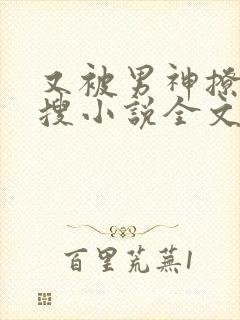 又被男神撩
搜小説全文
百里荒蕪1